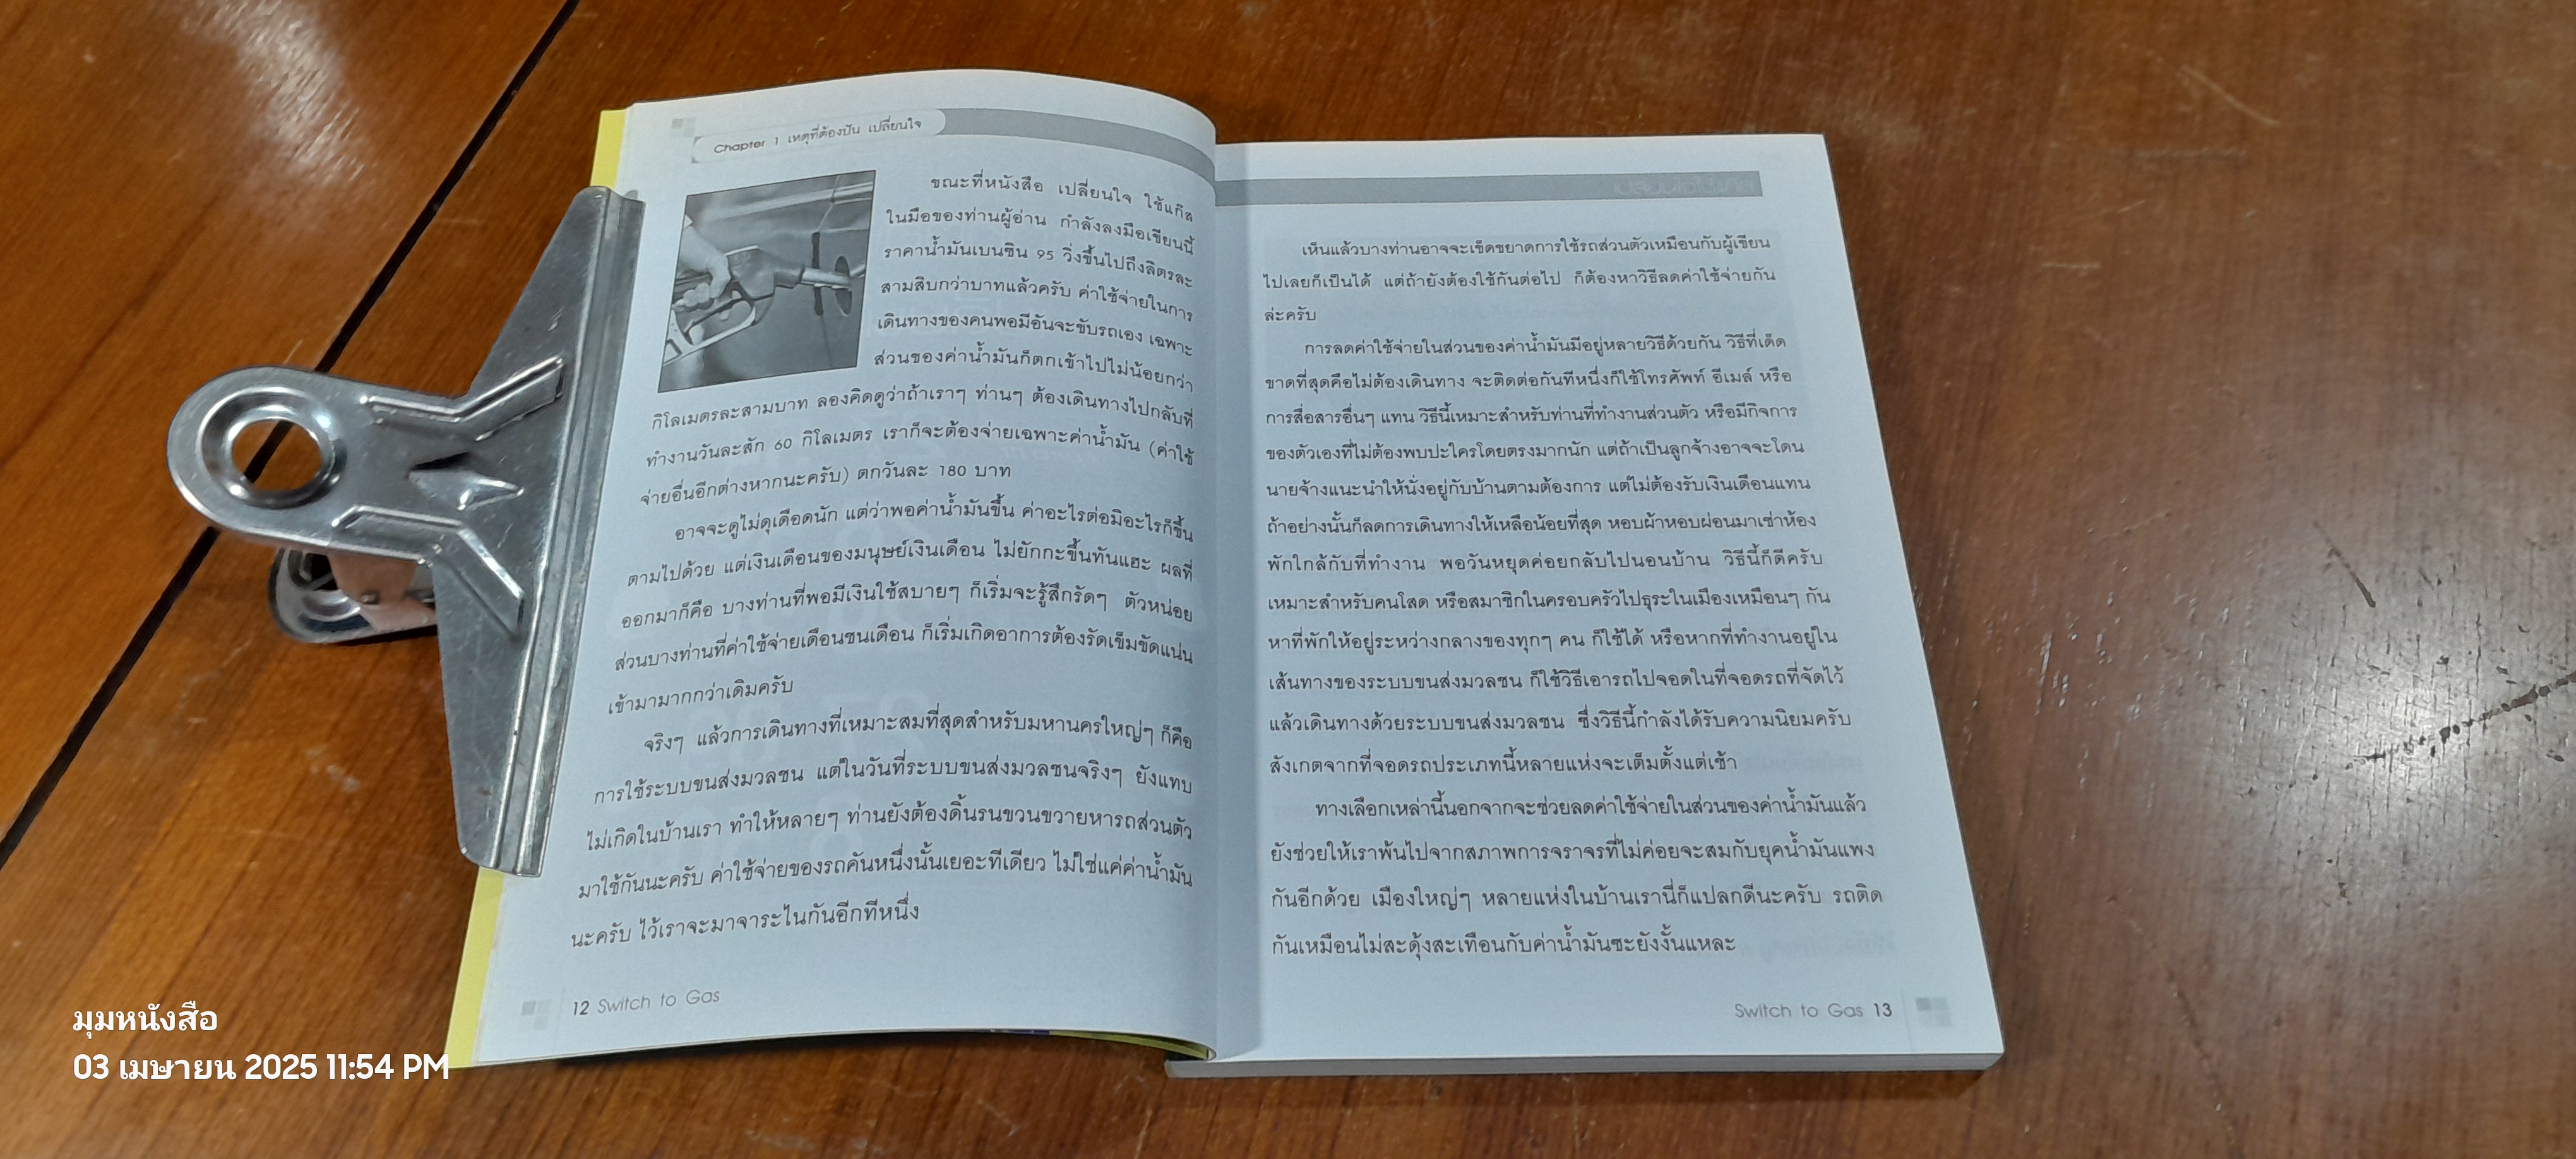 Chapter 1 เหตุที่ต้องปัน เปลี่ยนใจ
ขณะที่หนังสือ เปลี่ยนใจ ใช้แก๊ส
ในมือของท่านผู้อ่าน กำลังลงมือเขียนนี้
ราคาน้ำมันเบนซิน 95 วิ่งขึ้นไปถึงลิตรละ
สามสิบกว่าบาทแล้วครับ ค่าใช้จ่ายในการ
เดินทางของคนพอมีอันจะขับรถเอง เฉพาะ
ส่วนของค่าน้ำมันก็ตกเข้าไปไม่น้อยกว่า
กิโลเมตรละสามบาท ลองคิดดูว่าถ้าเราๆ ท่านๆ ต้องเดินทางไปกลับที่
ทำงานวันละสัก 60 กิโลเมตร เราก็จะต้องจ่ายเฉพาะค่าน้ำมัน (ค่าใช้
จ่ายอื่นอีกต่างหากนะครับ) ตกวันละ 180 บาท
อาจจะดูไม่ดุเดือดนัก แต่ว่าพอค่าน้ำมันขึ้น ค่าอะไรต่อมิอะไรก็ขึ้น
ตามไปด้วย แต่เงินเดือนของมนุษย์เงินเดือน ไม่ยักกะขึ้นทันแฮะ ผลที่
ออกมาก็คือ บางท่านที่พอมีเงินใช้สบายๆ ก็เริ่มจะรู้สึกรัดๆ ตัวหน่อย
ส่วนบางท่านที่ค่าใช้จ่ายเดือนชนเดือน ก็เริ่มเกิดอาการต้องรัดเข็มขัดแน่น
เข้ามามากกว่าเดิมครับ
จริงๆ แล้วการเดินทางที่เหมาะสมที่สุดสำหรับมหานครใหญ่ๆ ก็คือ
การใช้ระบบขนส่งมวลชน แต่ในวันที่ระบบขนส่งมวลชนจริงๆ ยังแทบ
ไม่เกิดในบ้านเรา ทำให้หลายๆ ท่านยังต้องดิ้นรนขวนขวายหารถส่วนตัว
มาใช้กันนะครับ ค่าใช้จ่ายของรถคันหนึ่งนั้นเยอะทีเดียว ไม่ใช่แค่ค่าน้ำมัน
นะครับ ไว้เราจะมาจาระไนกันอีกทีหนึ่ง
12 Switch to Gas
เห็นแล้วบางท่านอาจจะเข็ดขยาดการใช้รถส่วนตัวเหมือนกับผู้เขียน
ไปเลยก็เป็นได้ แต่ถ้ายังต้องใช้กันต่อไป ก็ต้องหาวิธีลดค่าใช้จ่ายกัน
ล่ะครับ
การลดค่าใช้จ่ายในส่วนของค่าน้ำมันมีอยู่หลายวิธีด้วยกัน วิธีที่เด็ด
ขาดที่สุดคือไม่ต้องเดินทาง จะติดต่อกันทีหนึ่งก็ใช้โทรศัพท์ อีเมล์ หรือ
การสื่อสารอื่นๆ แทน วิธีนี้เหมาะสำหรับท่านที่ทำงานส่วนตัว หรือมีกิจการ
ของตัวเองที่ไม่ต้องพบปะใครโดยตรงมากนัก แต่ถ้าเป็นลูกจ้างอาจจะโดน
นายจ้างแนะนำให้นั่งอยู่กับบ้านตามต้องการ แต่ไม่ต้องรับเงินเดือนแทน
ถ้าอย่างนั้นก็ลดการเดินทางให้เหลือน้อยที่สุด หอบผ้าหอบผ่อนมาเช่าห้อง
พักใกล้กับที่ทำงาน พอวันหยุดค่อยกลับไปนอนบ้าน วิธีนี้ก็ดีครับ
เหมาะสำหรับคนโสด หรือสมาชิกในครอบครัวไปธุระในเมืองเหมือนๆ กัน
หาที่พักให้อยู่ระหว่างกลางของทุกๆ คน ก็ใช้ได้ หรือหากที่ทำงานอยู่ใน
เส้นทางของระบบขนส่งมวลชน ก็ใช้วิธีเอารถไปจอดในที่จอดรถที่จัดไว้
แล้วเดินทางด้วยระบบขนส่งมวลชน ซึ่งวิธีนี้กำลังได้รับความนิยมครับ
สังเกตจากที่จอดรถประเภทนี้หลายแห่งจะเต็มตั้งแต่เช้า
ทางเลือกเหล่านี้นอกจากจะช่วยลดค่าใช้จ่ายในส่วนของค่าน้ำมันแล้ว
ยังช่วยให้เราพ้นไปจากสภาพการจราจรที่ไม่ค่อยจะสมกับยุคน้ำมันแพง
กันอีกด้วย เมืองใหญ่ๆ หลายแห่งในบ้านเรานี่ก็แปลกดีนะครับ รถติด
กันเหมือนไม่สะดุ้งสะเทือนกับค่าน้ำมันซะยังงั้นแหละ
Switch to Gas 13
มุมหนังสือ
03 เมษายน 2025 11:54 PM